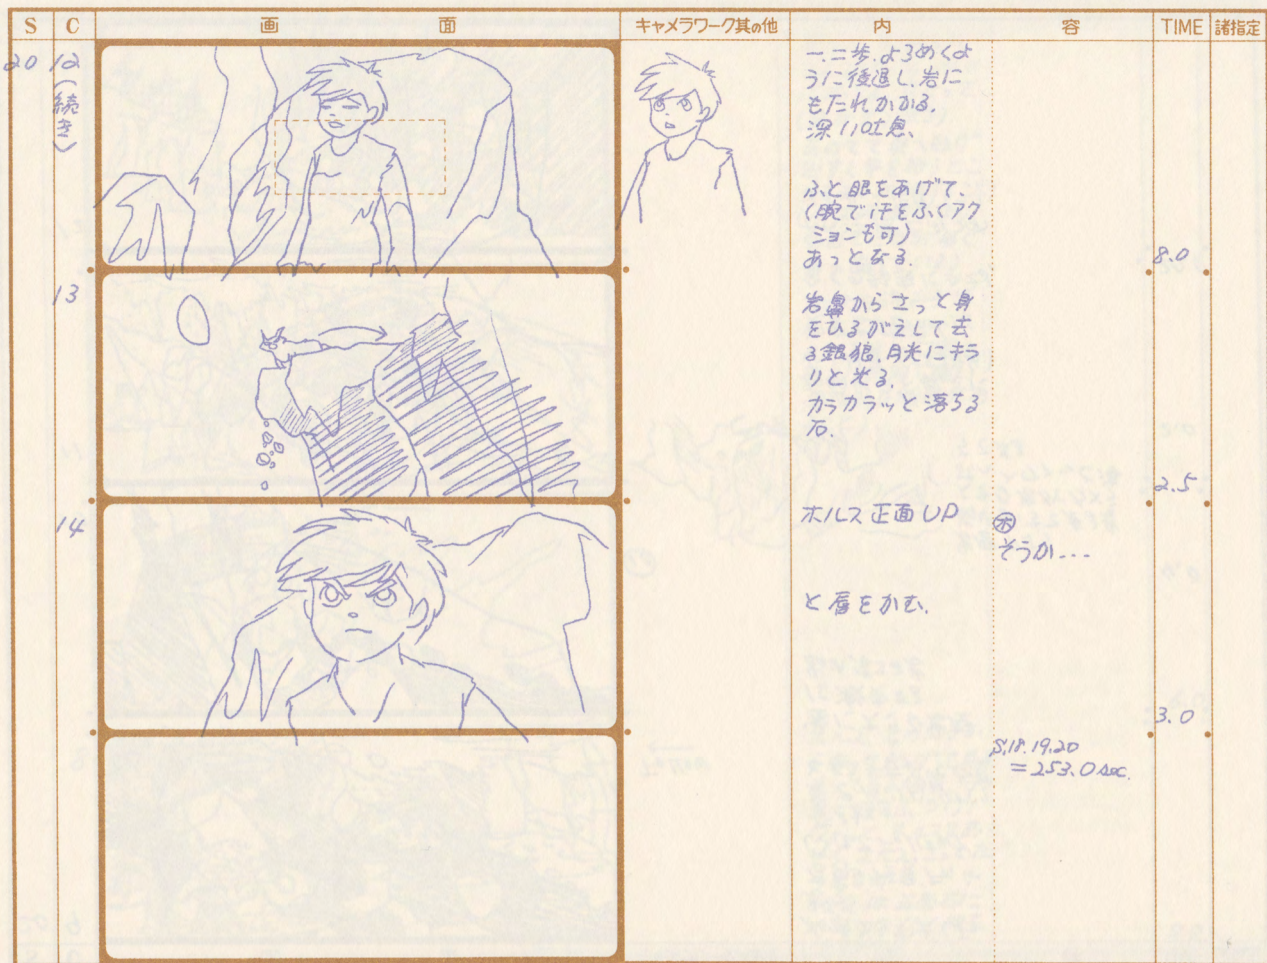 S
C
画面
キャメラワーク其の他
内容
TIME
諸指定
20
12
(続き)
一、二歩、よろめくよ
うに後退し、岩に
もたれかかる。
深い吐息、
ふと眼をあげて、
(腕で汗をふくアク
ションも可)
あっとなる。
8.0
13
岩鼻からさっと身
をひるがえして去
る銀狼、月光にキラ
リと光る。
カラカラッと落ちる
石。
2.5
14
ホルス正面UP
ホ
そうか…
と唇をかむ。
3.0
S.18.19.20
=253.0 sec.